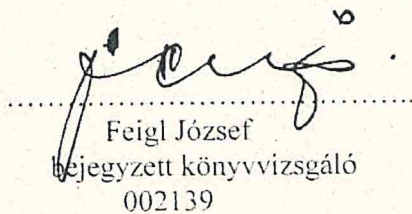 Feigl József
bejegyzett könyvvizsgáló
002139